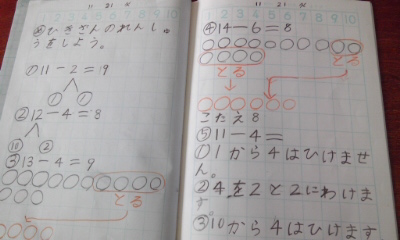 ひきざんのれんし
ゅうをしよう。
①11－2＝19
① ①
②12－4＝8
⑩ ②
③13－4＝9
とる
④14－6＝8
とる
とる
こたえ8
⑤11－4＝
①1から4はひけませ
ん。
②4を2と2にわけま
す。
③10から4はひけます